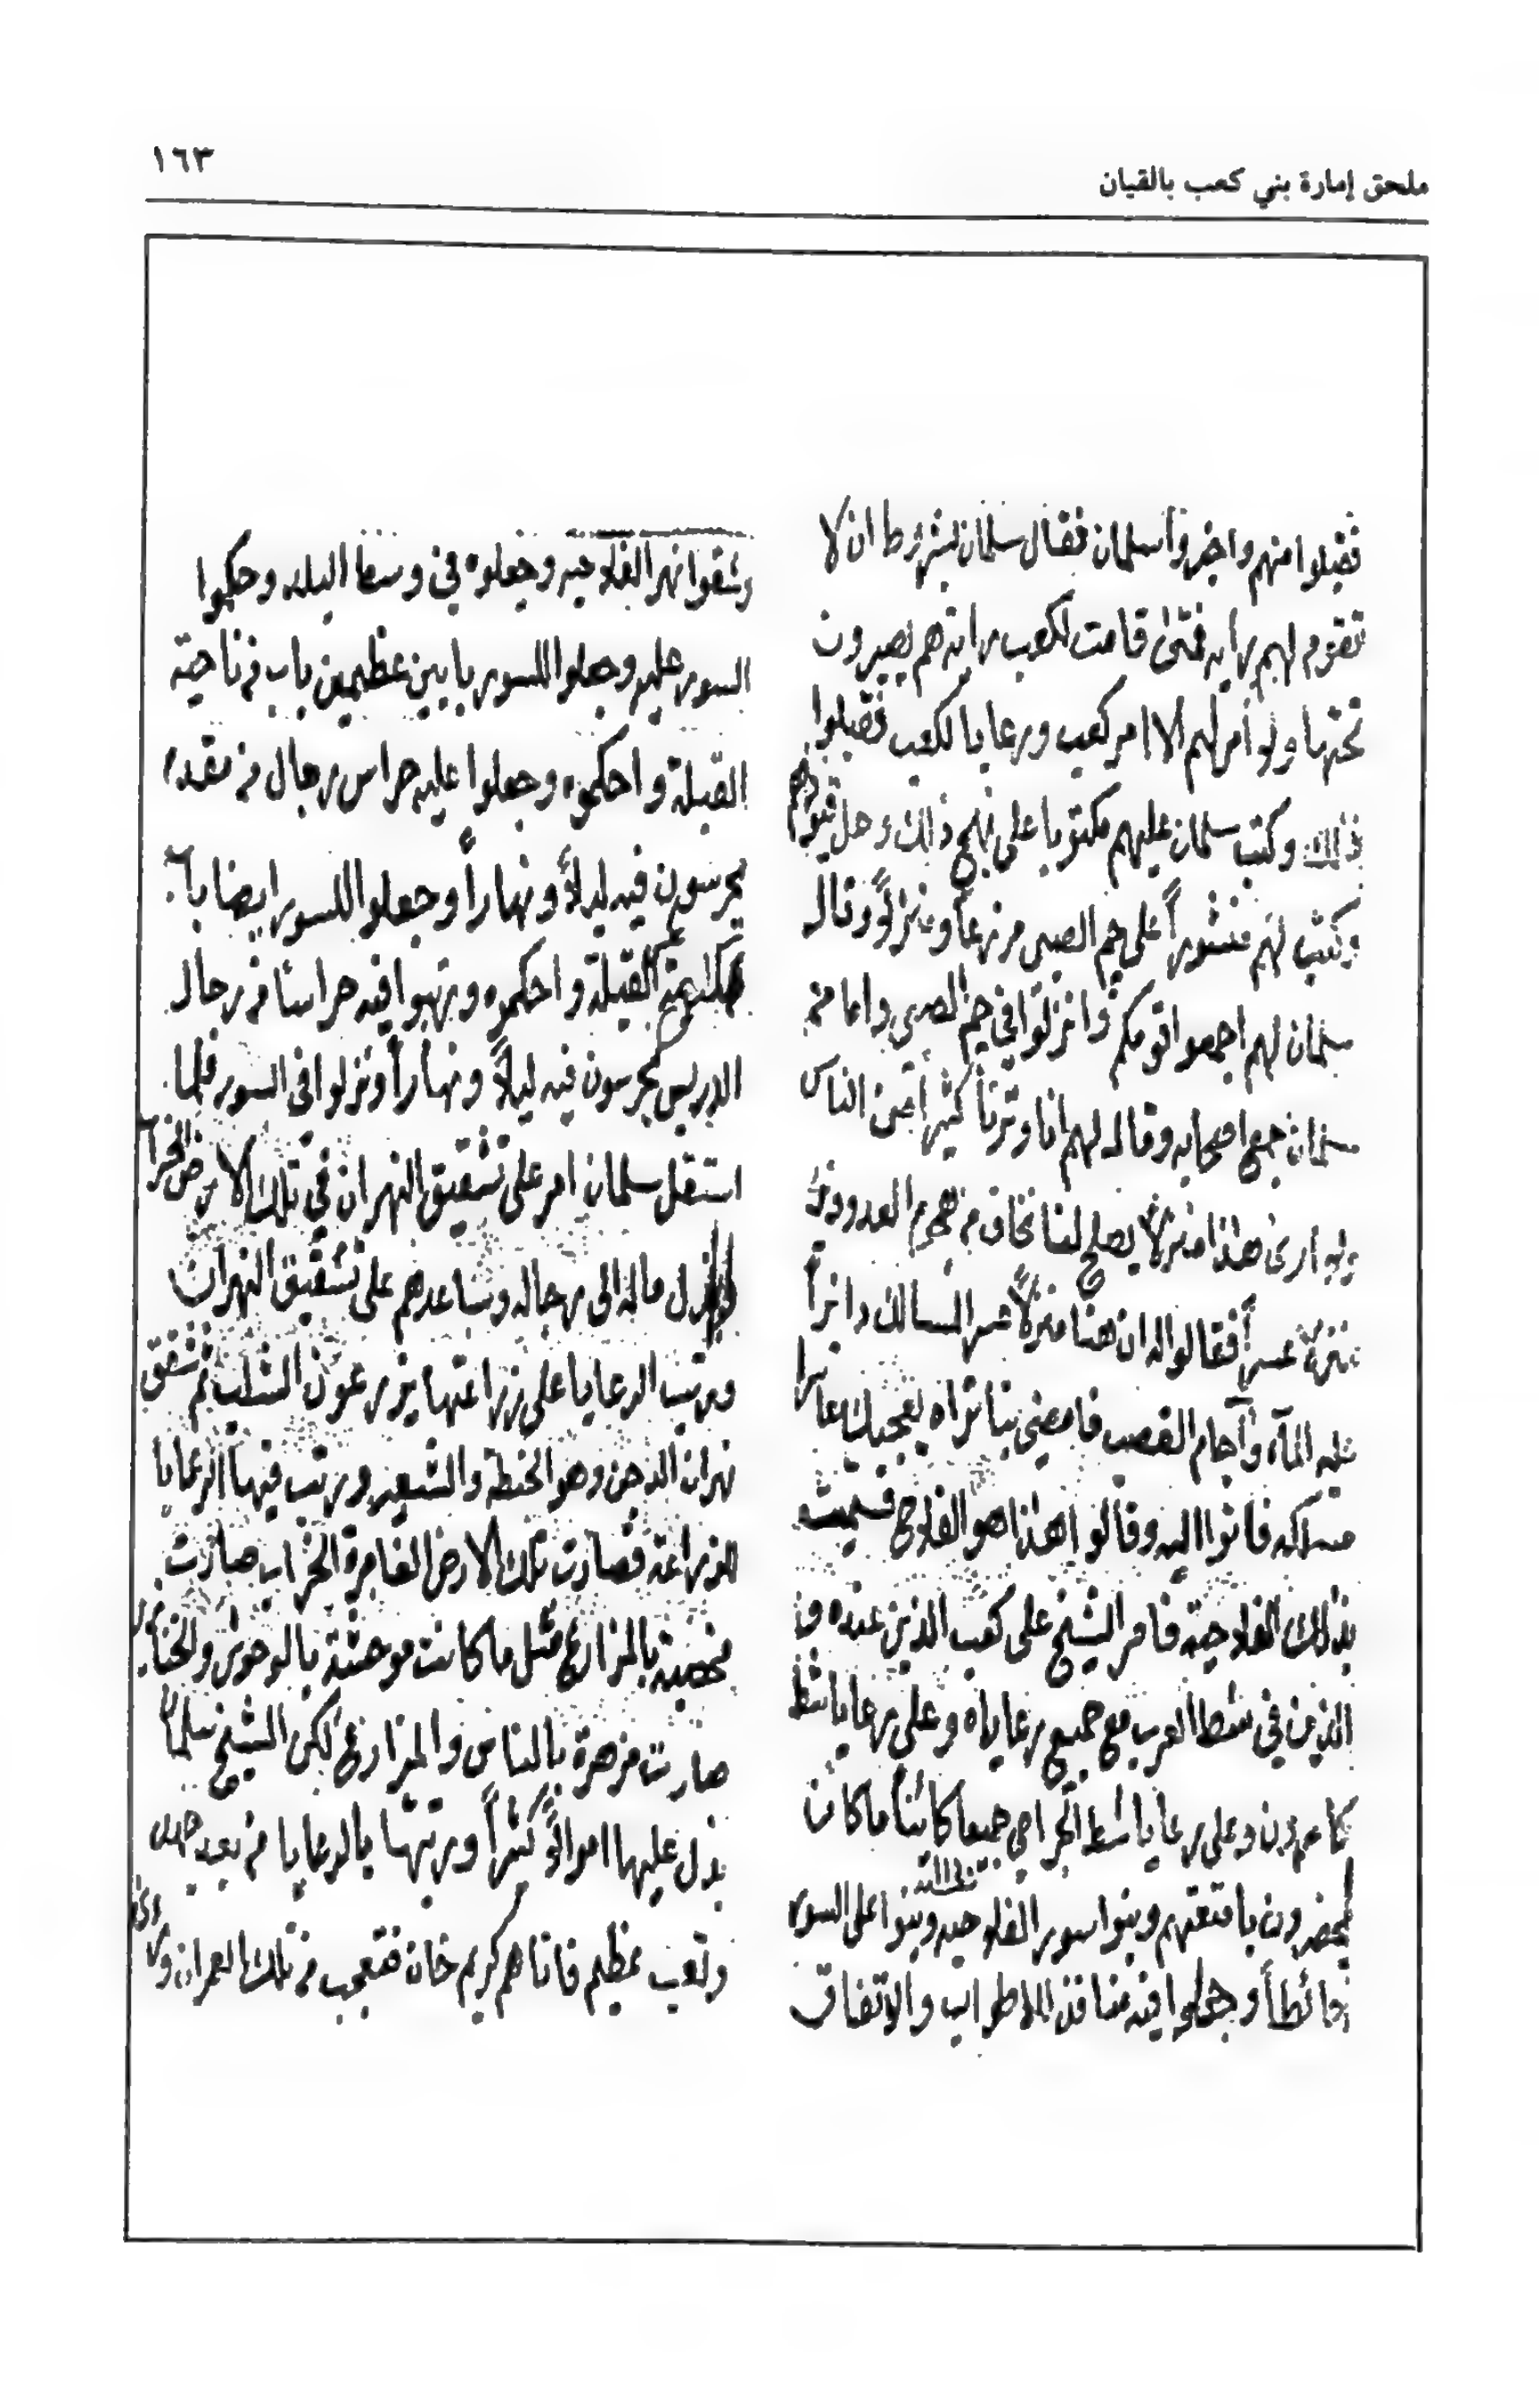 ملحق إمارة بني كعب بالقبان
١٦٣
فقبلوا منهم واخبروا سلمان فقال سلمان بشروط ان لا
تقوم لهم راية فمتى قامت لكعب راية هم يصيرون
تحتها ولو امر لهم الا امر كعب ورعايا لكعب فقبلوا
ذلك وكتب سلمان عليهم مكتوبا على نهج ذلك
وكتب لهم منشوراً على خم الصبى مزرعاً ومنزلاً وقال
سلمان لهم اجمعوا قومكم وانزلوا في خم الصبى واما
سلمان جمع اصحابه وقال لهم انا وترنا كثيراً من الناس
ولو ارى هذا منزلاً يصلح لنا نخاف من هجوم العدو
منزلاً عسراً فقالوا له ان هنا منزلاً عسر المسالك دائراً
عليه المآء وآجام القصب فامضي بنا تراه يعجبك
مسلكه فاتوا اليه وقالوا هذا هو الفلاح فسميت
بذلك الفلاحية فامر الشيخ على كعب الذين عنده و
الذين في شط العرب مع جميع رعاياه وعلى رعايا شط
كارون وعلى رعايا شط الجراحي جميعا كائناً ما كان
يحضرون بامتعتهم وبنوا سور الفلاحية وبنوا على السور
حائطاً وجعلوا فيه منافذ للاطواب والاتفاق
وشقوا نهر الفلاحيه وجعلوه في وسط البلد وحكموا
السور عليه وجعلوا للسور بابين عظيمين باب من ناحية
القبلة واحكموه وجعلوا عليه حراس رجال من مقدم
يحرسون فيه ليلاً ونهاراً وجعلوا للسور ايضا باب
القبلة واحكموه ورتبوا فيه حراسا من رجال
الدريس يحرسون فيه ليلاً ونهاراً ونزلوا في السور فلما
استقل سلمان امر على تشقيق النهران في تلك الارض الخراب
بذل ماله الى رجاله وساعدهم على تشقيق النهران
ورتب الرعايا على زراعتها يزرعون الشلب ثم شقق
نهران الدجن وهو الحنطة والشعير ورتب فيها الرعايا
للزراعة فصارت تلك الارض الغامرة الخراب صارت
مخصبة بالمزارع مثل ما كانت موحشة بالوحوش والخنازير
صارت مزهرة بالناس والمزارع لكن الشيخ سلمان
بذل عليها اموالاً كثيراً ورتبها بالرعايا من بعد جهد
وتعب عظيم فاتاهم كريم خان فتعجب من تلك العمران